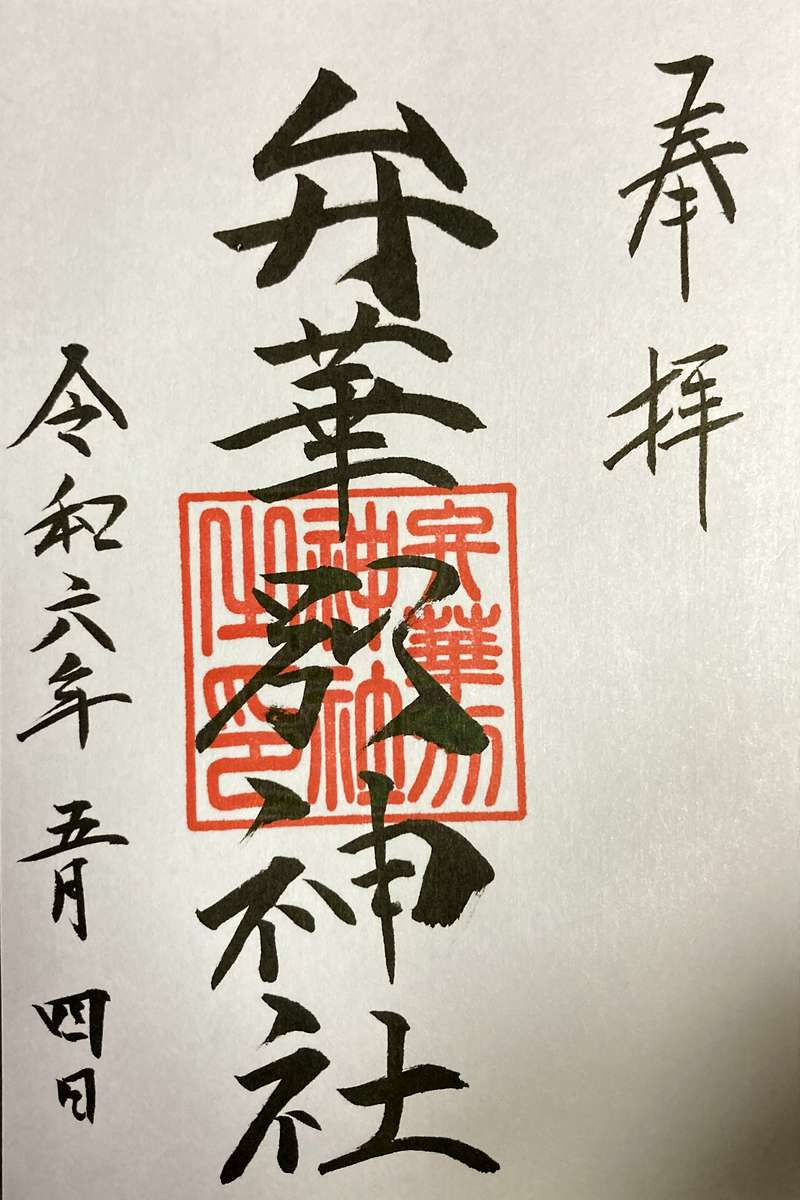 奉拝
弁華別神社
令和六年 五月 四日
弁華別
神社
之印